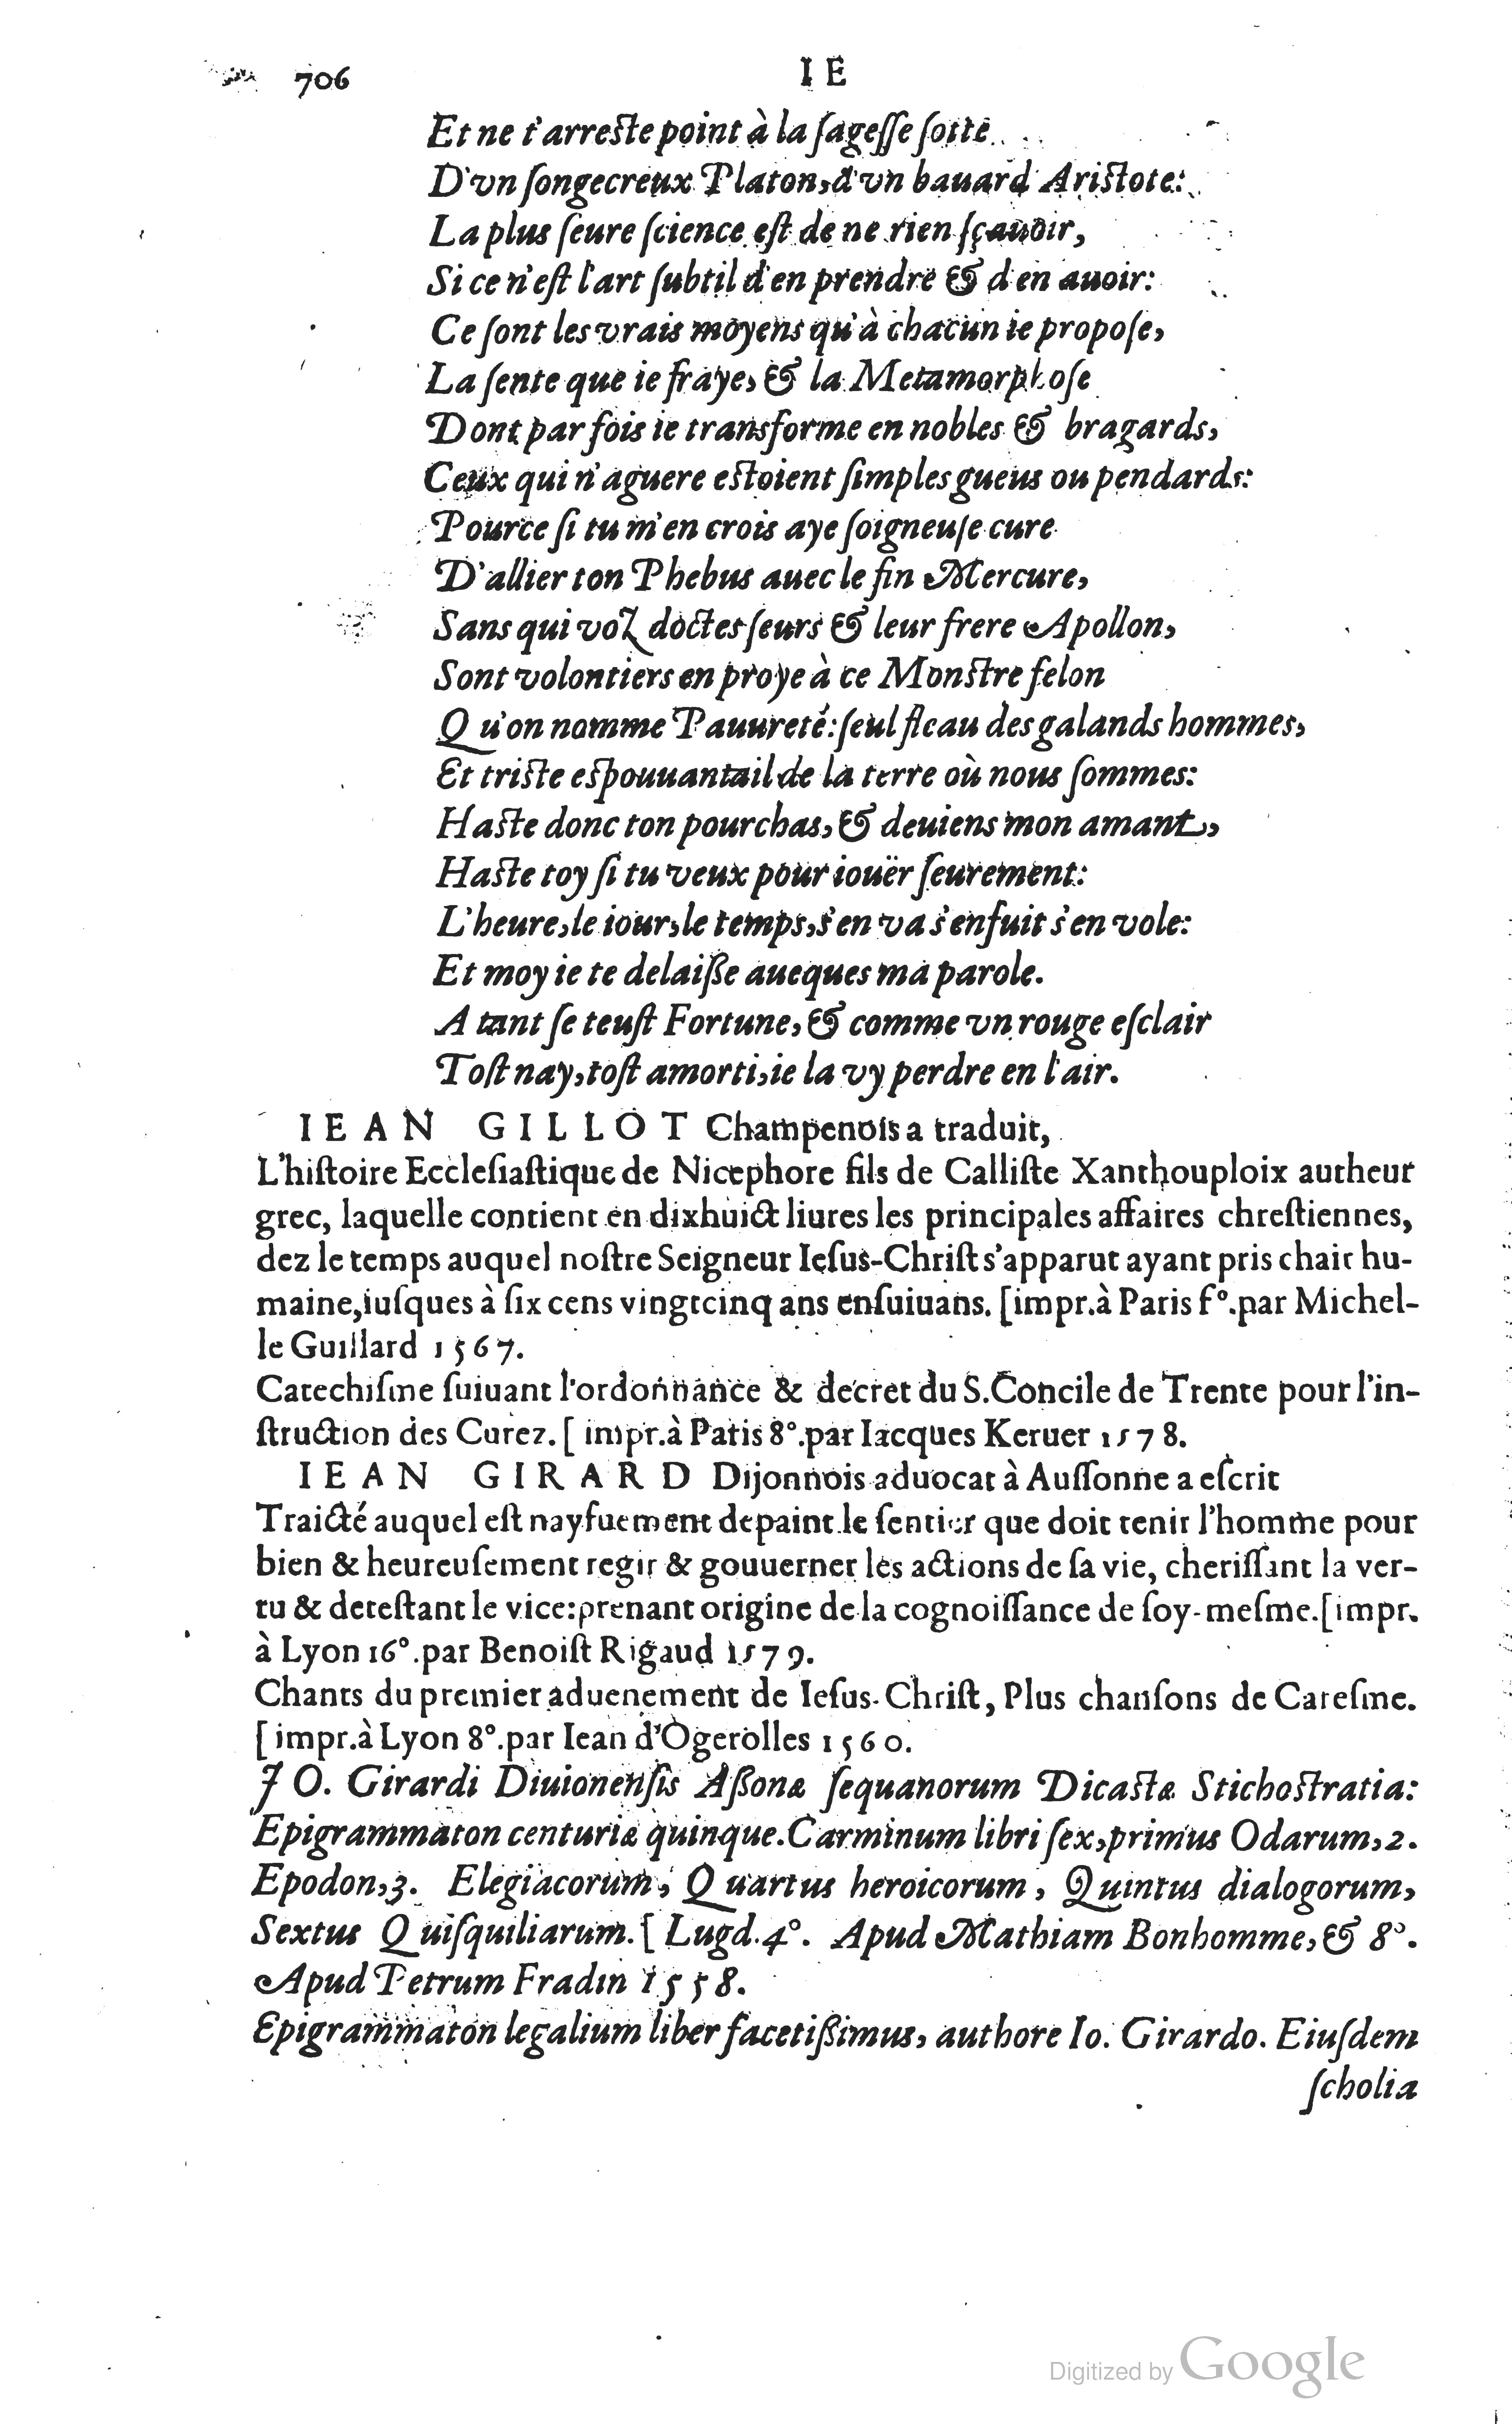 706 IE
Et ne t'arreſte point à la ſageſſe ſotte
D'vn ſongecreux Platon, d'vn bauard Ariſtote:
La plus ſeure ſcience eſt de ne rien ſçauoir,
Si ce n'eſt l'art ſubtil d'en prendre & d'en auoir:
Ce ſont les vrais moyens qu'à chacun ie propoſe,
La ſente que ie fraye, & la Metamorphoſe
Dont par fois ie transforme en nobles & bragards,
Ceux qui n'aguere eſtoient ſimples gueus ou pendards:
Pource ſi tu m'en crois aye ſoigneuſe cure
D'allier ton Phebus auec le fin Mercure,
Sans qui voz doctes ſeurs & leur frere Apollon,
Sont volontiers en proye à ce Monſtre felon
Qu'on nomme Pauureté: ſeul fleau des galands hommes,
Et triſte eſpouuantail de la terre où nous ſommes:
Haſte donc ton pourchas, & deuiens mon amant,
Haſte toy ſi tu veux pour iouër ſeurement:
L'heure, le iour, le temps, s'en va s'enfuit s'en vole:
Et moy ie te delaiſſe aueques ma parole.
A tant ſe teuſt Fortune, & comme vn rouge eſclair
Toſt nay, toſt amorti, ie la vy perdre en l'air.
IEAN GILLOT Champenois a traduit,
L'hiſtoire Eccleſiaſtique de Nicephore fils de Calliſte Xanthouploix autheur
grec, laquelle contient en dixhuict liures les principales affaires chreſtiennes,
dez le temps auquel noſtre Seigneur Ieſus-Chriſt s'apparut ayant pris chair hu-
maine, iuſques à ſix cens vingtcinq ans enſuiuans. [impr. à Paris f°. par Michel-
le Guillard 1567.
Catechiſme ſuiuant l'ordonnance & decret du S. Concile de Trente pour l'in-
ſtruction des Curez. [impr. à Paris 8°. par Iacques Keruer 1578.
IEAN GIRARD Dijonnois aduocat à Auſſonne a eſcrit
Traicté auquel eſt nayfuement depaint le ſentier que doit tenir l'homme pour
bien & heureuſement regir & gouuerner les actions de ſa vie, cheriſſant la ver-
tu & deteſtant le vice: prenant origine de la cognoiſſance de ſoy-meſme. [impr.
à Lyon 16°. par Benoiſt Rigaud 1579.
Chants du premier aduenement de Ieſus-Chriſt, Plus chanſons de Careſme.
[impr. à Lyon 8°. par Iean d'Ogerolles 1560.
JO. Girardi Diuionenſis Aſſonæ ſequanorum Dicaſtæ Stichoſtratia:
Epigrammaton centuriæ quinque. Carminum libri ſex, primus Odarum, 2.
Epodon, 3. Elegiacorum, Quartus heroicorum, Quintus dialogorum,
Sextus Quiſquiliarum. [Lugd. 4°. Apud Mathiam Bonhomme, & 8°.
Apud Petrum Fradin 1558.
Epigrammaton legalium liber facetiſſimus, authore Io. Girardo. Eiuſdem
ſcholia
Digitized by Google